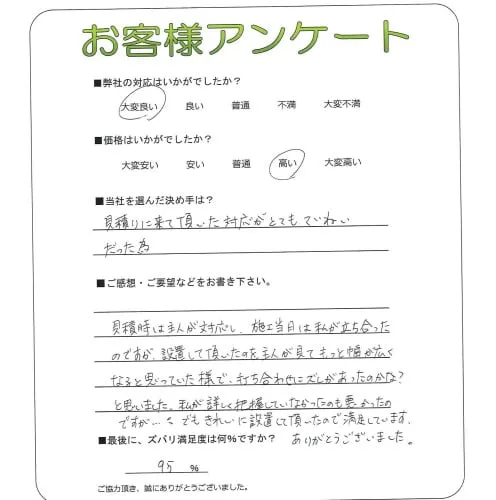 お客様アンケート
■弊社の対応はいかがでしたか？
大変良い 良い 普通 不満 大変不満
■価格はいかがでしたか？
大変安い 安い 普通 高い 大変高い
■当社を選んだ決め手は？
見積りに来て頂いた対応がとてもていねい
だった為
■ご感想・ご要望などをお書き下さい。
見積時は主人が対応し、施工当日は私が立ち合った
のですが、設置して頂いたのを主人が見てもっと幅が広く
なると思っていた様で、打ち合わせにズレがあったのかな?
と思いました。私が詳しく把握していなかったのも悪かったの
ですが…。でもきれいに設置して頂いたので満足しています。
ありがとうございました。
■最後に、ズバリ満足度は何%ですか？
95 %
ご協力頂き、誠にありがとうございました。